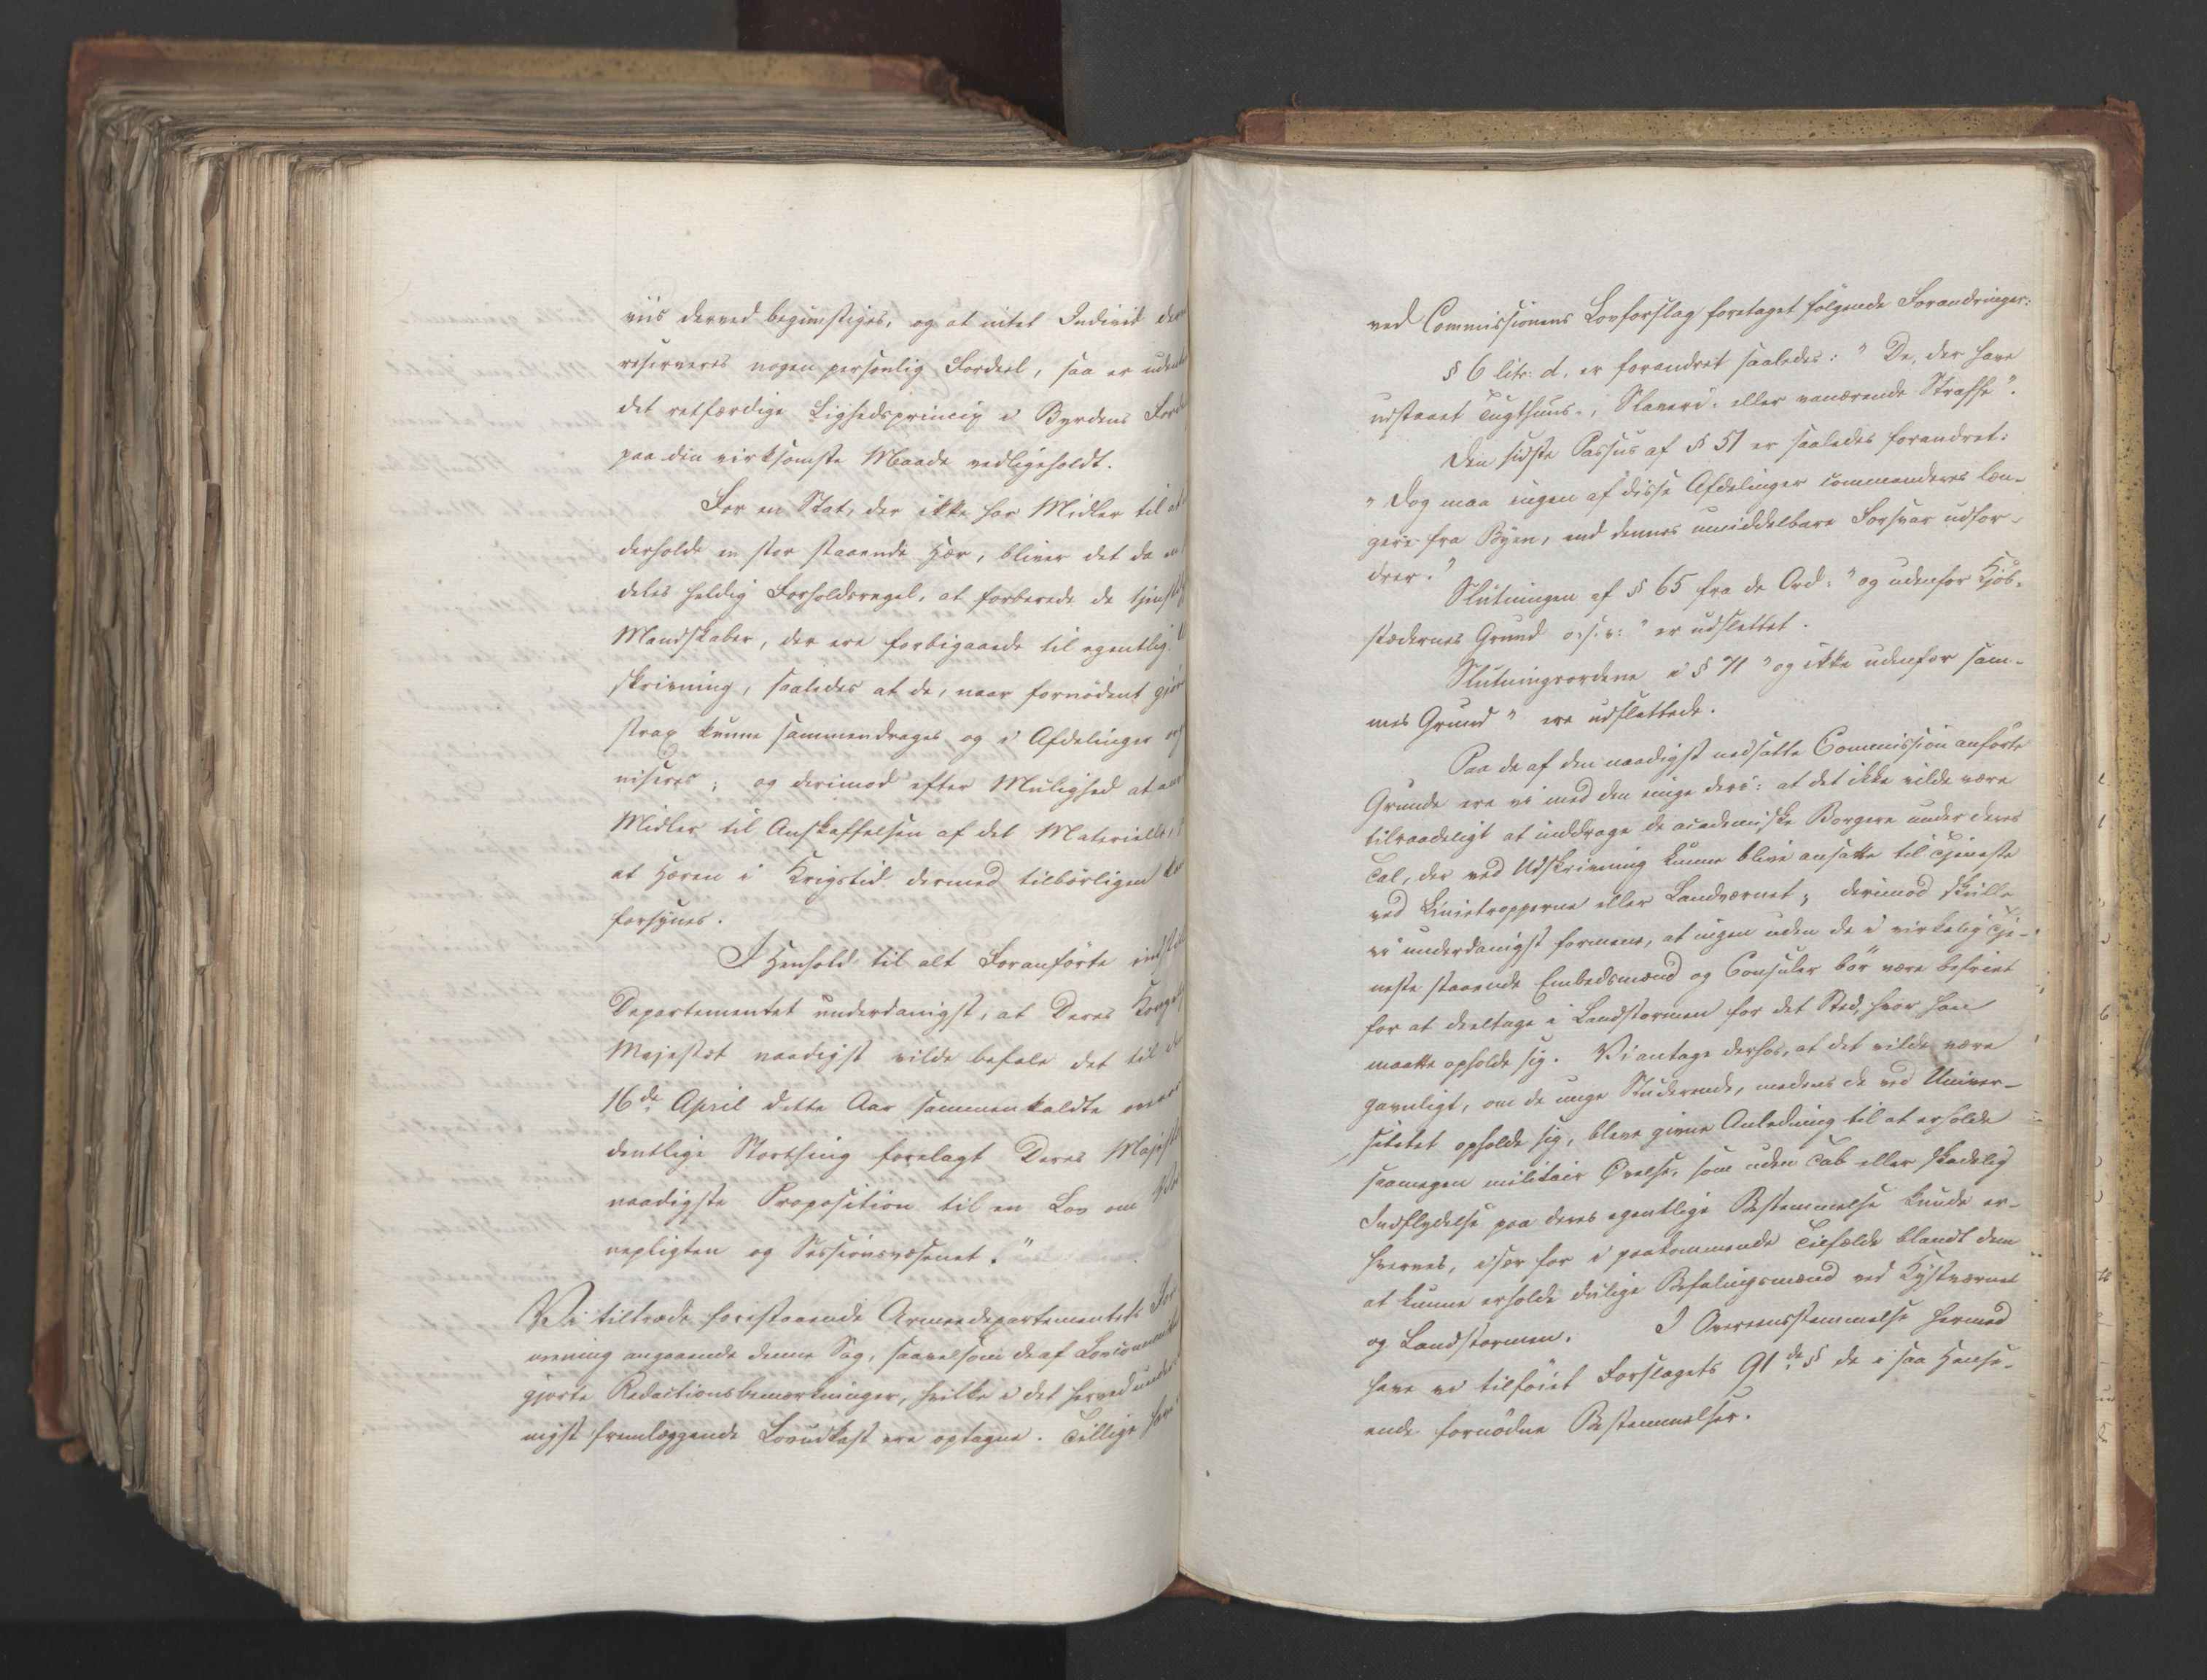 viis derved begunstiges, og at intet Individ der
reserveres nogen personlig Fordeel, saa er uden
det retfærdige Lighedsprincip i Byrdens For
paa den virksomste Maade vedligeholdt.
For en Stat, der ikke har Midler til at
derholde en stor staaende Hær, bliver det da en
deles heldig Forholdsregel, at forberede de tjenst
Mandskaber, der ere forbigaaede til egentlig U
skrivning, saaledes at de, naar fornødent gjør
strax kunne sammendrages og i Afdelinger or
niseres; og derimod efter Mulighed at an
Midler til Anskaffelsen af det Materielle,
at Hæren i Krigstid dermed tilbørligen k
forsynes.
I Henhold til alt Foranførte indst
Departementet underdanigst, at Deres Konge
Majestæt naadigst vilde befale det til d
16de April dette Aar sammenkaldte over
dentlige Storthing forelagt Deres Majest
naadigste Proposition til en Lov om Vær
nepligten og Sessionsvæsenet."
Vi tiltræde forestaaende Armeedepartementets For
mening angaaende denne Sag, saavelsom de af Lovcommit
gjorte Redactionsbemærkninger, hvilke i det herved under
nigst fremlæggende Lovudkast ere optagne. Tillige have
ved Commissionens Lovforslag foretaget følgende Forandringer:
§ 6 litr. d. er forandret saaledes: "De, der have
udstaaet Tugthuus-, Slaveri- eller vanærende Straffe".
Den sidste Passus af § 51 er saaledes forandret:
"Dog maa ingen af disse Afdelinger commanderes læn-
gere fra Byen, end dennes umiddelbare Forsvar udfor-
drer."
Slutningen af § 65 fra de Ord: "og udenfor Kjøb-
stædernes Grund o. s. v:" er udslettet.
Slutningsordene i § 71 "og ikke udenfor sam-
mes Grund" ere udslettede.
Paa de af den naadigst nedsatte Commission anførte
Grunde ere vi med den enige deri: at det ikke vilde være
tilraadeligt at inddrage de academiske Borgere under deres
Tal, der ved Udskrivning kunne blive ansatte til Tjeneste
ved Linietropperne eller Landværnet; derimod skulle
vi underdanigst formene, at ingen uden de i virkelig Tje-
neste staaende Embedsmænd og Consuler bør være befriet
for at deeltage i Landstormen for det Sted, hvor han
maatte opholde sig. Vi antage derhos, at det vilde være
gavnligt, om de unge Studerende, medens de ved Univer-
sitetet opholde sig, bleve givne Anledning til at erholde
saamegen militair Øvelse, som uden Tab eller skadelig
Indflydelse paa deres egentlige Bestemmelse kunde er-
hverves, især for i paakommende Tilfælde blandt dem
at kunne erholde duelige Befalingsmænd ved Kystværnet
og Landstormen. I Overeensstemmelse hermed
have vi tilføiet Forslagets 91de § de i saa Hense-
ende fornødne Bestemmelser.